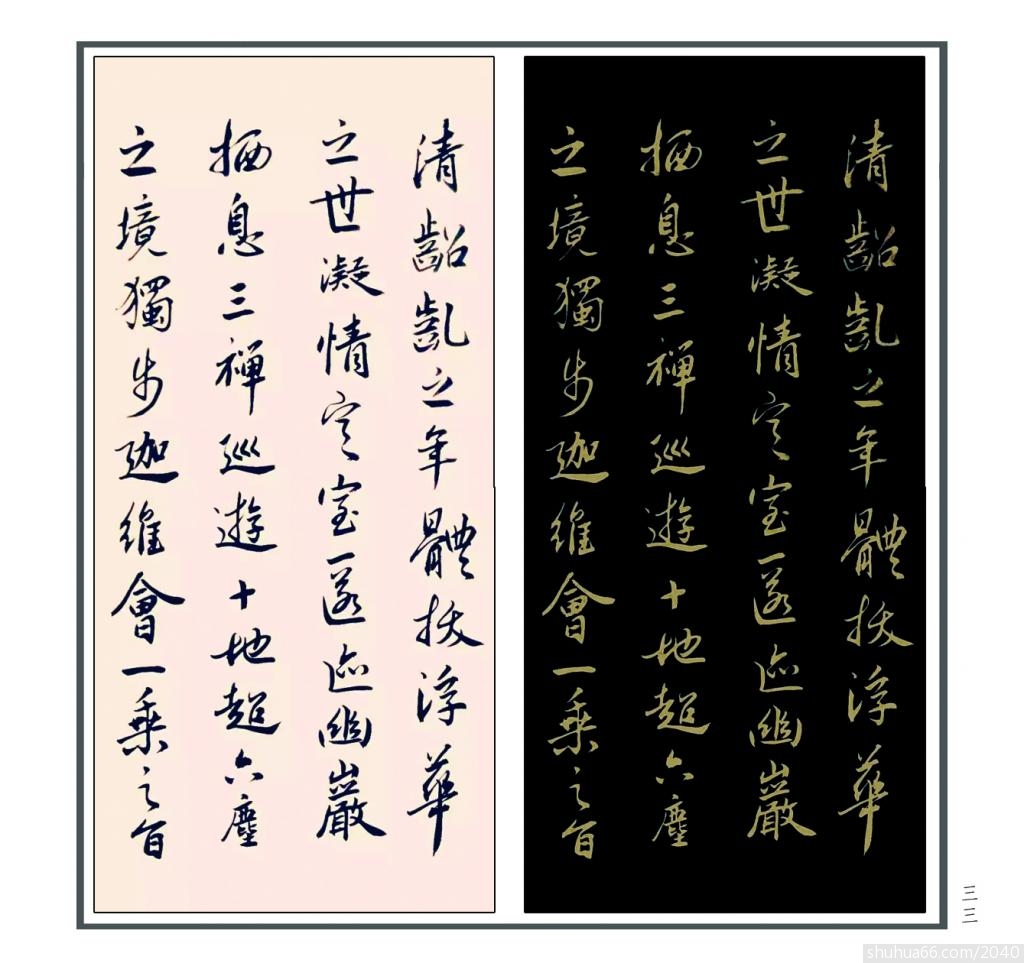 清齠齔之年體拔浮華
之世凝情定室匿迹幽巖
栖息三禪巡遊十地超六塵
之境獨步迦維會一乘之旨
清齠齔之年體拔浮華
之世凝情定室匿迹幽巖
栖息三禪巡遊十地超六塵
之境獨步迦維會一乘之旨
三三
shuhua66.com/2040